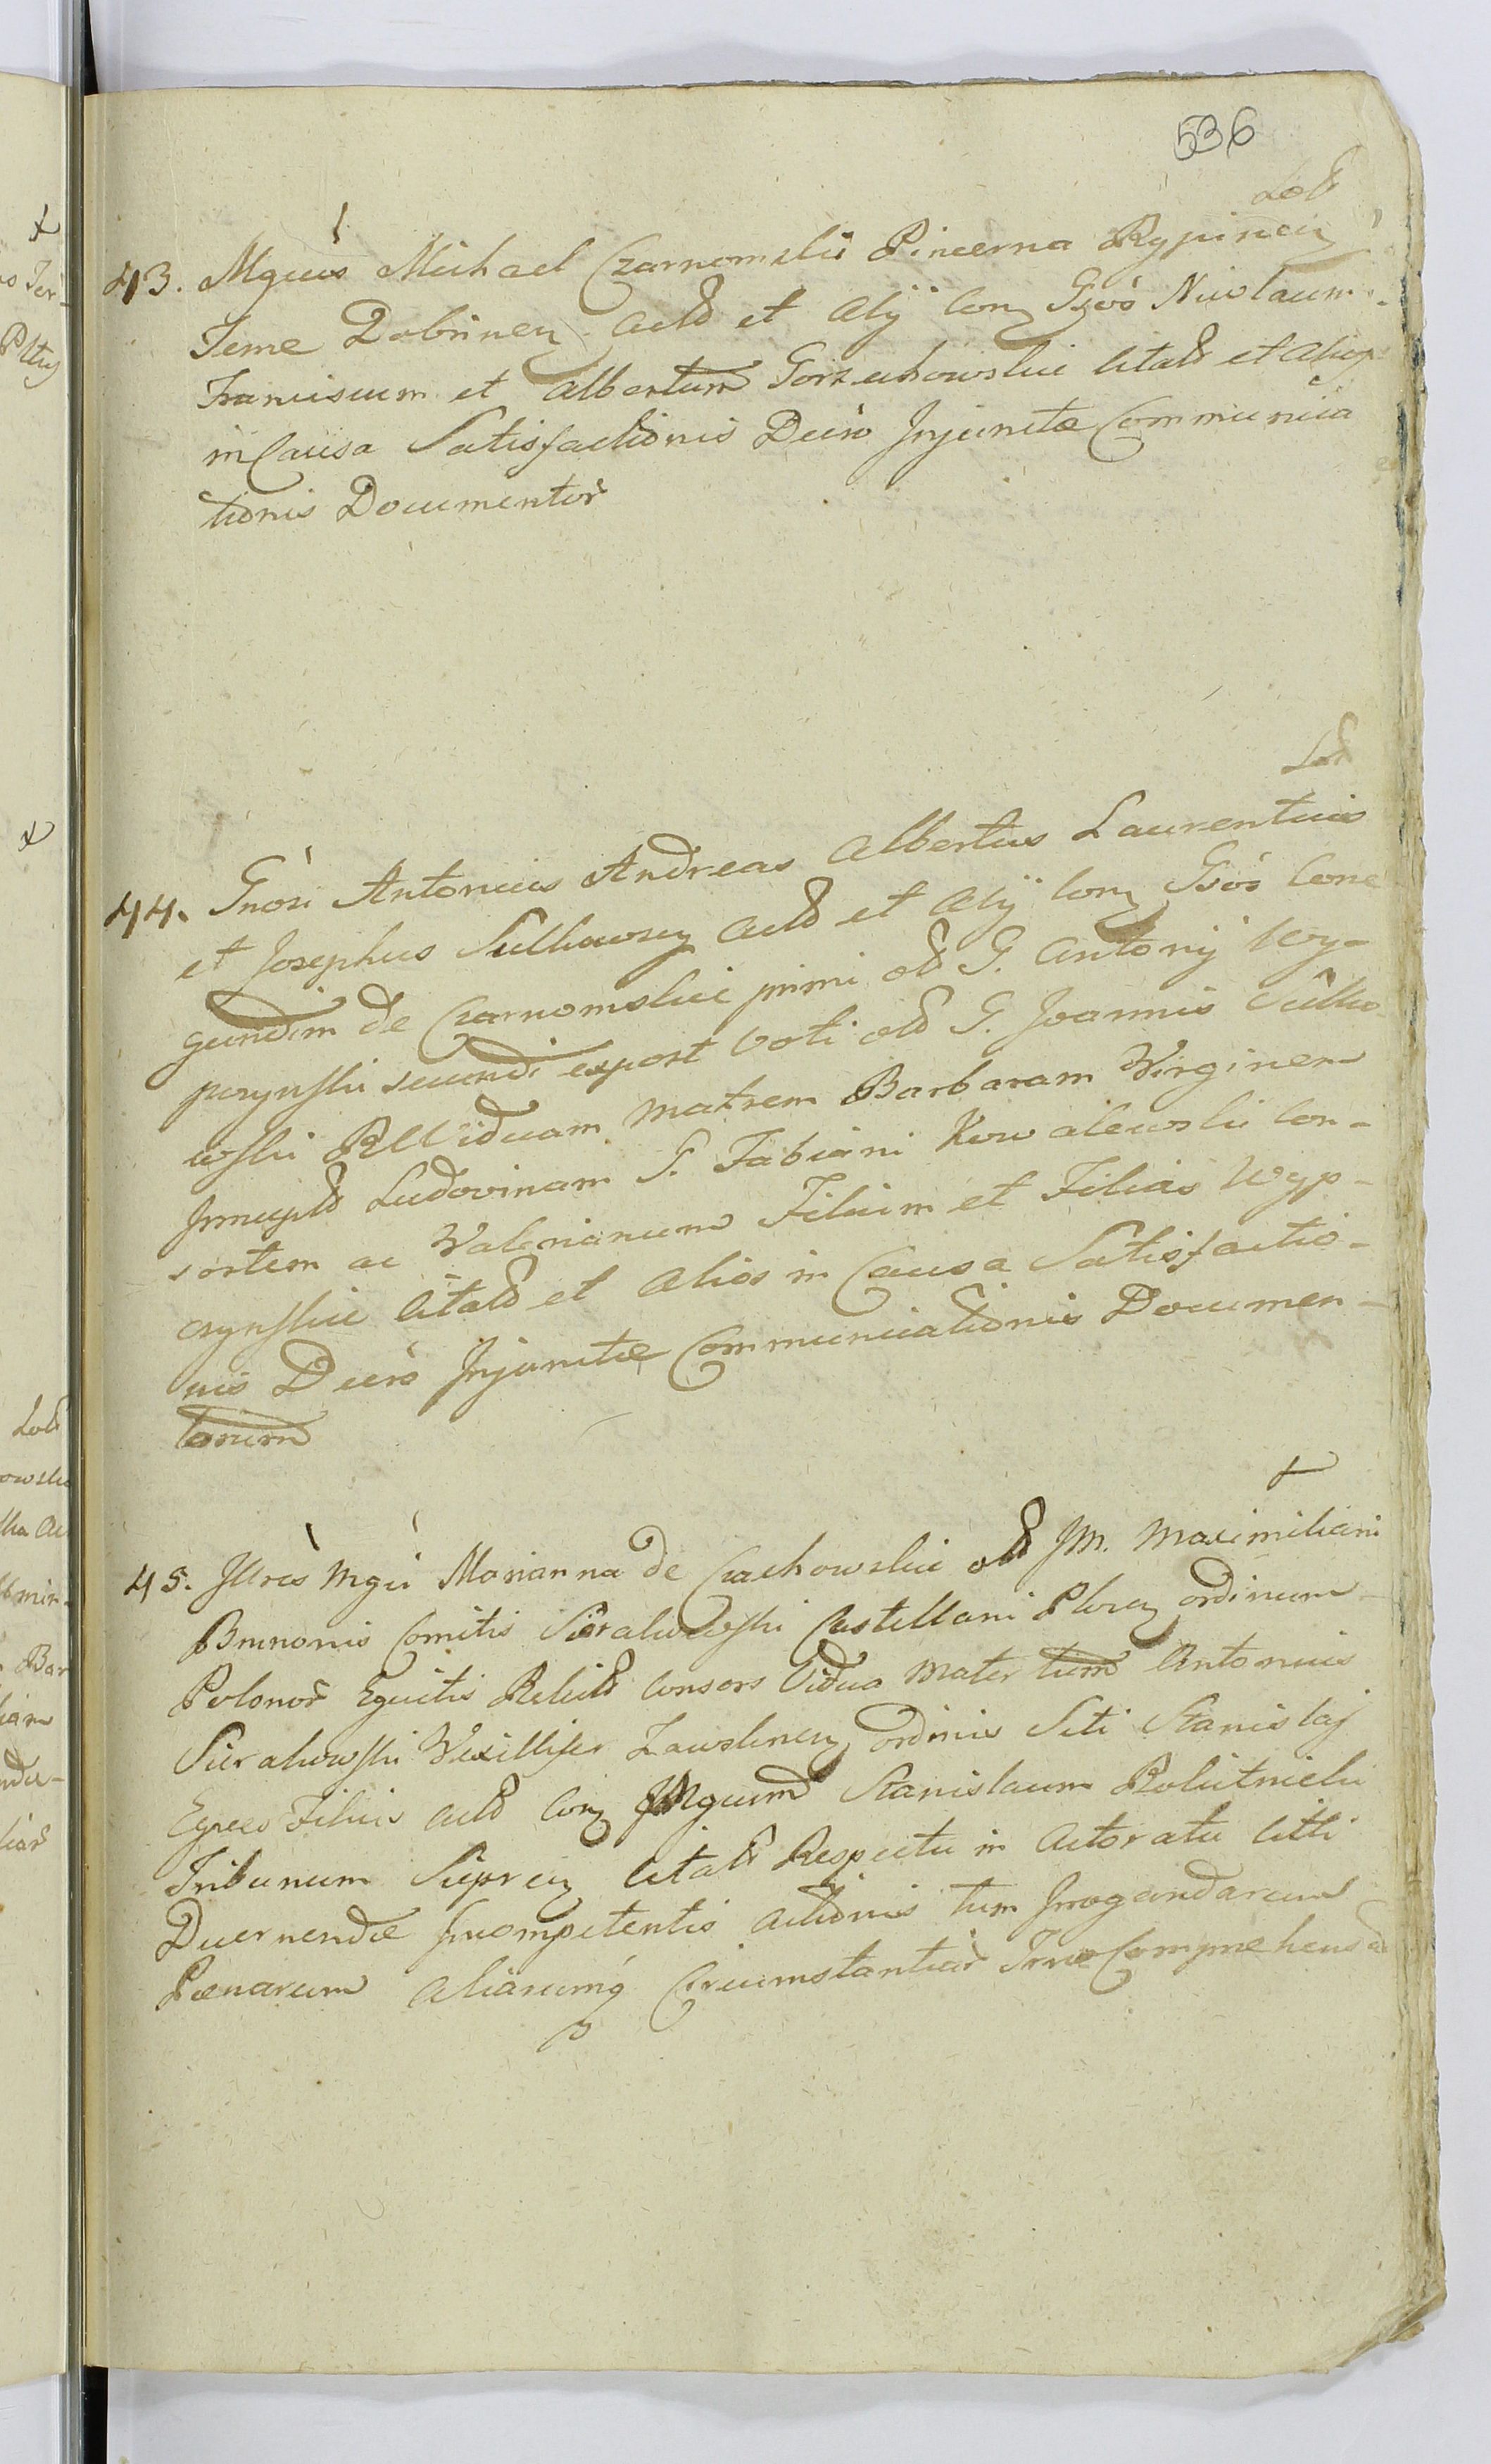 536
Lod
43. Mgcus Michael Czarnomski Pincerna Rypinen
Terrae Dobrinen Actd et Alÿ Con Gsos Nicolaum
Franciscum et Albertum Gorzechowskie Citatd et Alios
in Causa Satisfactionis Decro Injunctae Communica
tionis Documentor
Lod
44. Gnosi Antonius Andreas Albertus Laurentius
et Josephus Sulkowscy Actd et Alÿ Con Gsos Cune
gundim de Czarnomskie primi old G. Antonÿ Wy-
porynski secundi expost Voti old G. Joannis Sulko
wski RlViduam Matrem Barbaram Virginem
Innuptd Ludovinam G. Fabiani Kowalewski Con-
sortem ac Valerianum Filium et Filias Wyp-
orynskie Citatd et Alios in Causa Satisfactio-
nis Decro Injunctae Communicationis Documen-
torum
45. Illres Mgci Marianna de Czachowskie old JM. Maximiliani
Brunonis Comitis Sierakowski Castellani Plocen Ordinum
Polonor Equitis Relictd Consors Vidua Mater tum Antonius
Sierakowski Vexillifer Zawskrnen Ordinis Scti Stanislaj
Eques Filius Actd Con JMgcum Stanislaum Rokitnicki
Tribunum Sieprcen Citatd Respectu in Actoratu Citti
Decernendae Incompetentis Actionis tum Irrogandarum
Paenarum Aliarumq Circumstantiar Trne Comprehensar